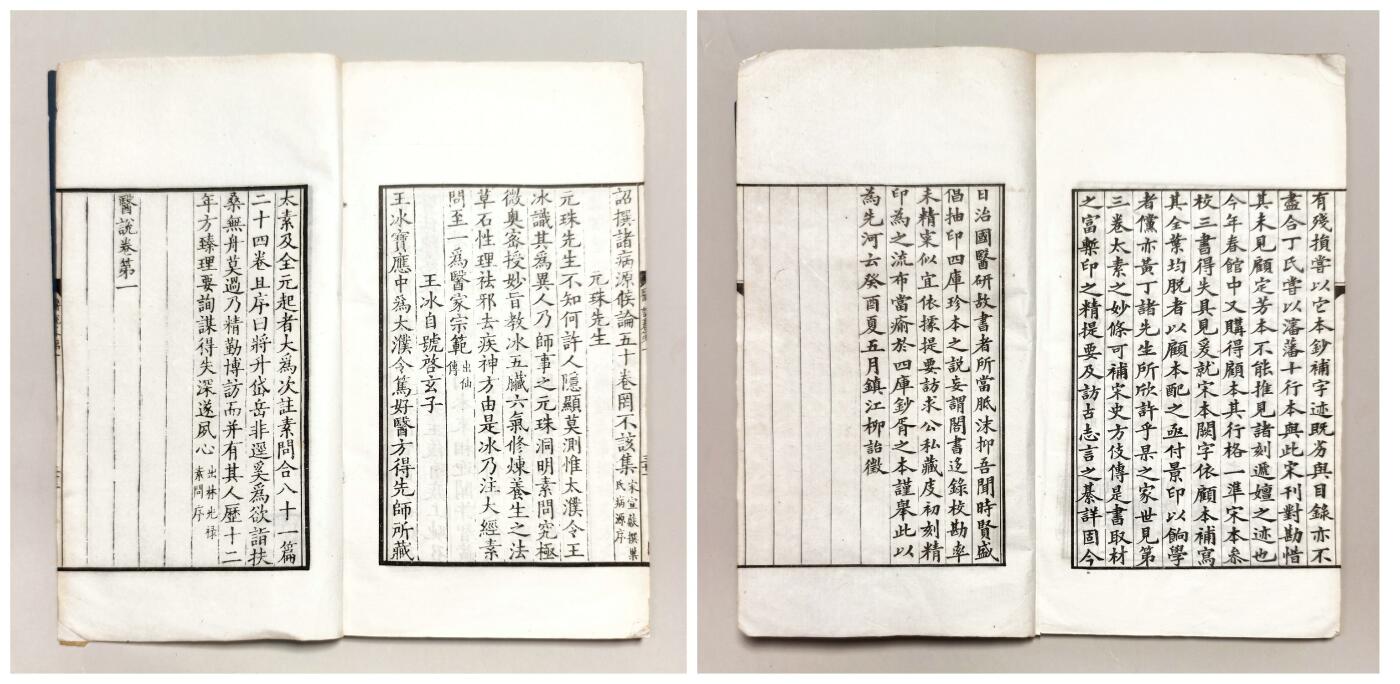 詔撰諸病源候論五十卷罔不該集宋宣獻撰巢氏病源序
元珠先生
元珠先生不知何許人隱顯莫測惟太濮令王
冰識其為異人乃師事之元珠洞明素問究極
微奥密授妙旨教冰五臟六氣修煉養生之法
草石性理祛邪去疾神方由是冰乃注大經素
問至一爲醫家宗範出仙傳
王冰自號啓玄子
王冰寶應中為太濮令篤好醫方得先師所藏
太素及全元起者大為次註素問合八十一篇
二十四卷且序曰將升岱岳非逕奚爲欲詣扶
桑無舟莫適乃精勤博訪而并有其人歷十二
年方臻理要詢謀得失深遂夙心出林光禄素問序
醫說卷第一
有殘損嘗以它本鈔補字迹既劣與目錄亦不
盡合丁氏嘗以瀋藩十行本與此宋刊對勘惜
其未見顧定芳本不能推見諸刻遞嬗之迹也
今年春館中又購得顧本其行格一準宋本叅
校三書得失具見爰就宋本闕字依顧本補寫
其全葉均脫者以顧本配之亟付景印以餉學
者儻亦黃丁諸先生所欣許乎杲之家世見第
三卷太素之妙條可補宋史方伎傳是書取材
之富槧印之精提要及訪古志言之綦詳固今
日治國醫研故書者所當胝沫抑吾聞時賢盛
倡抽印四庫珍本之說妄謂閣書迻錄校勘率
未精案似宜依據提要訪求公私藏庋初刻精
印為之流布當瘉於四庫鈔胥之本謹舉此以
為先河云癸酉夏五月鎮江柳詒徵